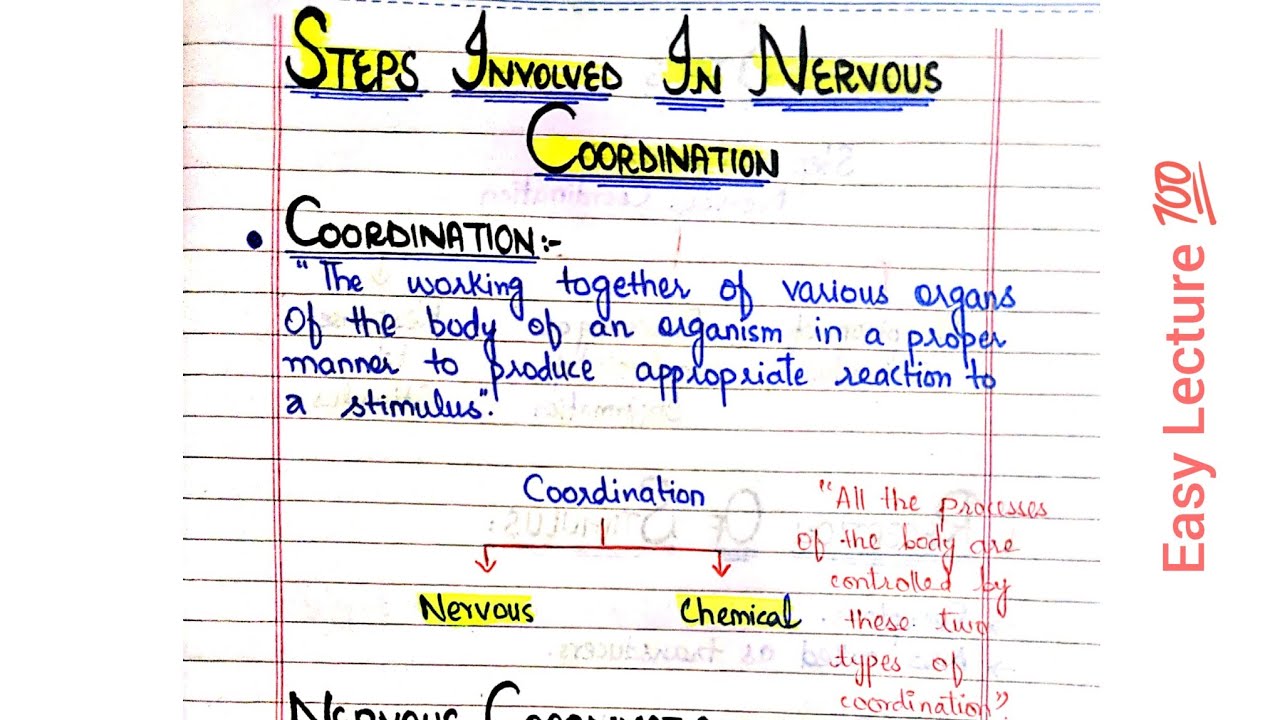 STEPS INVOLVED IN NERVOUS
COORDINATION
• COORDINATION:-
"The working together of various organs
Of the body of an organism in a proper
manner to produce appropriate reaction to
a stimulus".
Coordination
Nervous
Chemical
"All the processes
of the body are
controlled by
these two
types of
coordination"
NERVOUS
Easy Lecture 💯